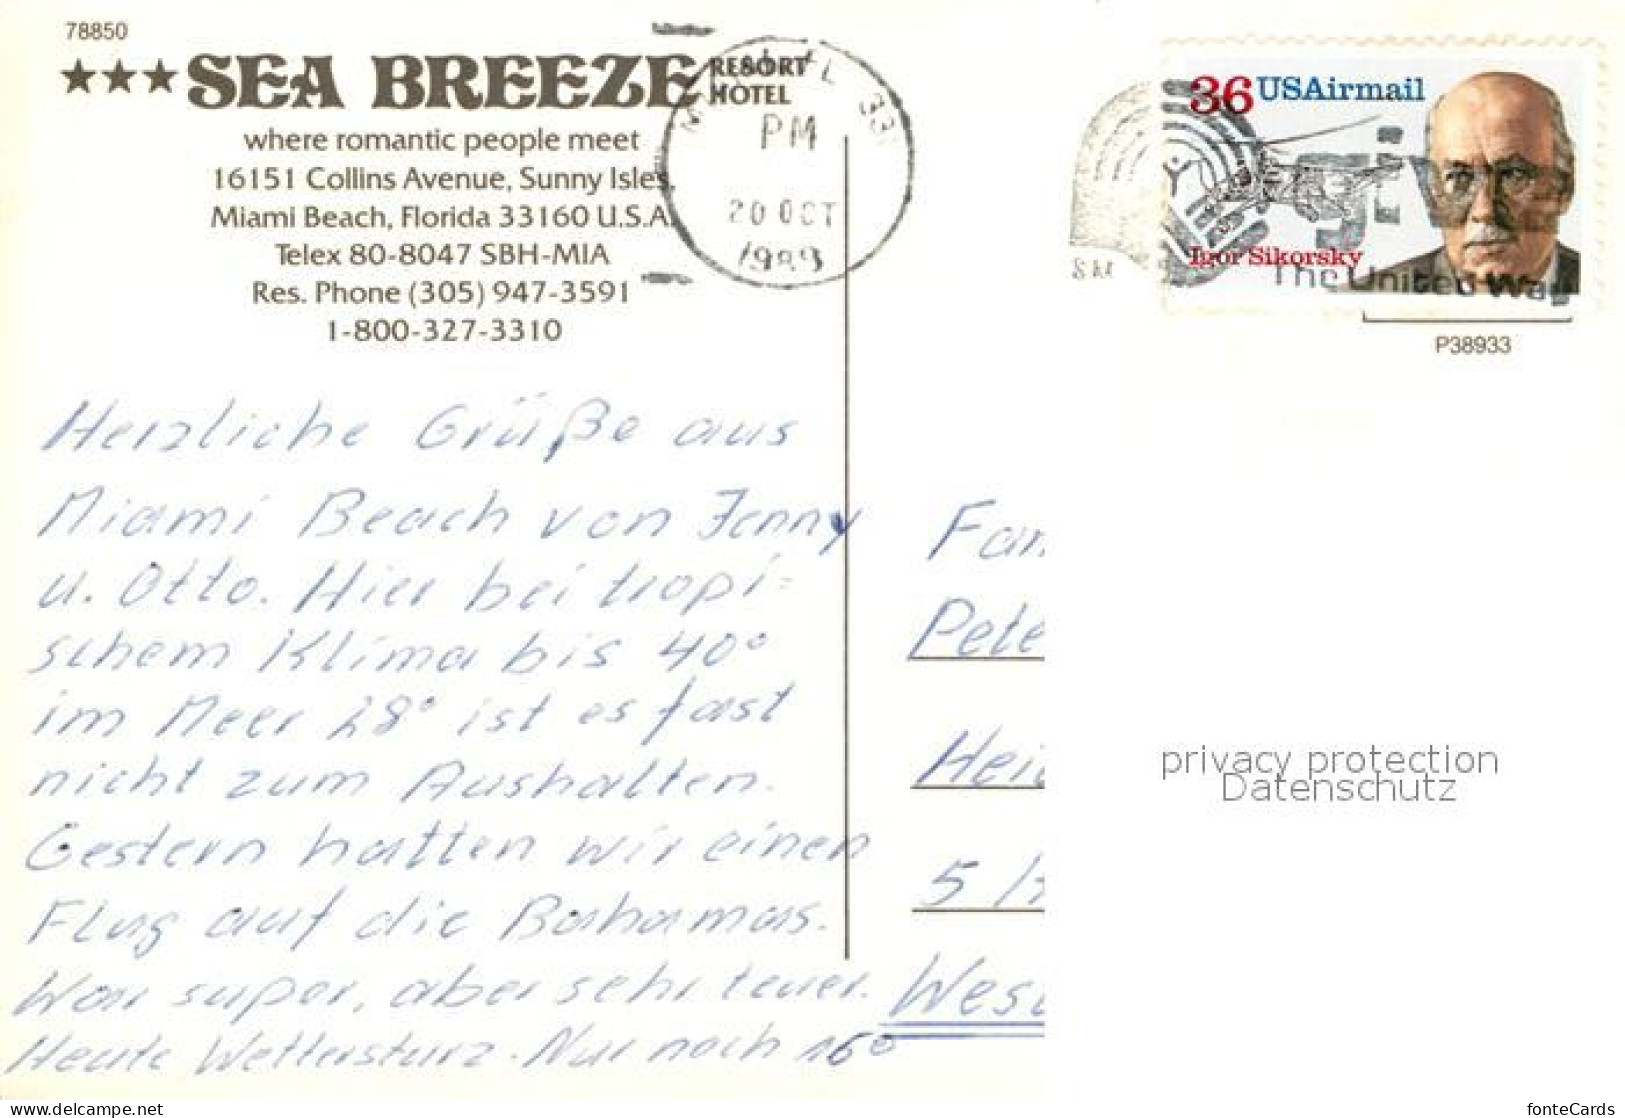 78850
★★★ SEA BREEZE RESORT HOTEL
where romantic people meet
16151 Collins Avenue, Sunny Isles,
Miami Beach, Florida 33160 U.S.A.
Telex 80-8047 SBH-MIA
Res. Phone (305) 947-3591
1-800-327-3310
PM
20 OCT
1989
36 USAirmail
Igor Sikorsky
The United Way
P38933
Herzliche Grüße aus
Miami Beach von Jenny
u. Otto. Hier bei tropi=
schem Klima bis 40°
im Meer 28° ist es fast
nicht zum Aushalten.
Gestern hatten wir einen
Flug auf die Bahamas.
War super, aber sehr teuer.
Heute Wettersturz. Nur noch 16°
Fam
Pete
Hei
5
Wes
privacy protection
Datenschutz
www.delcampe.net
fonteCards